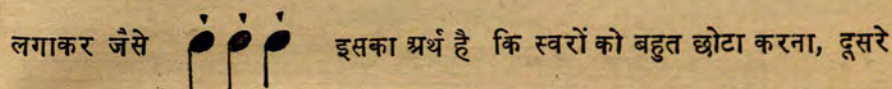 लगाकर जैसे इसका अर्थ है कि स्वरों को बहुत छोटा करना, दूसरे